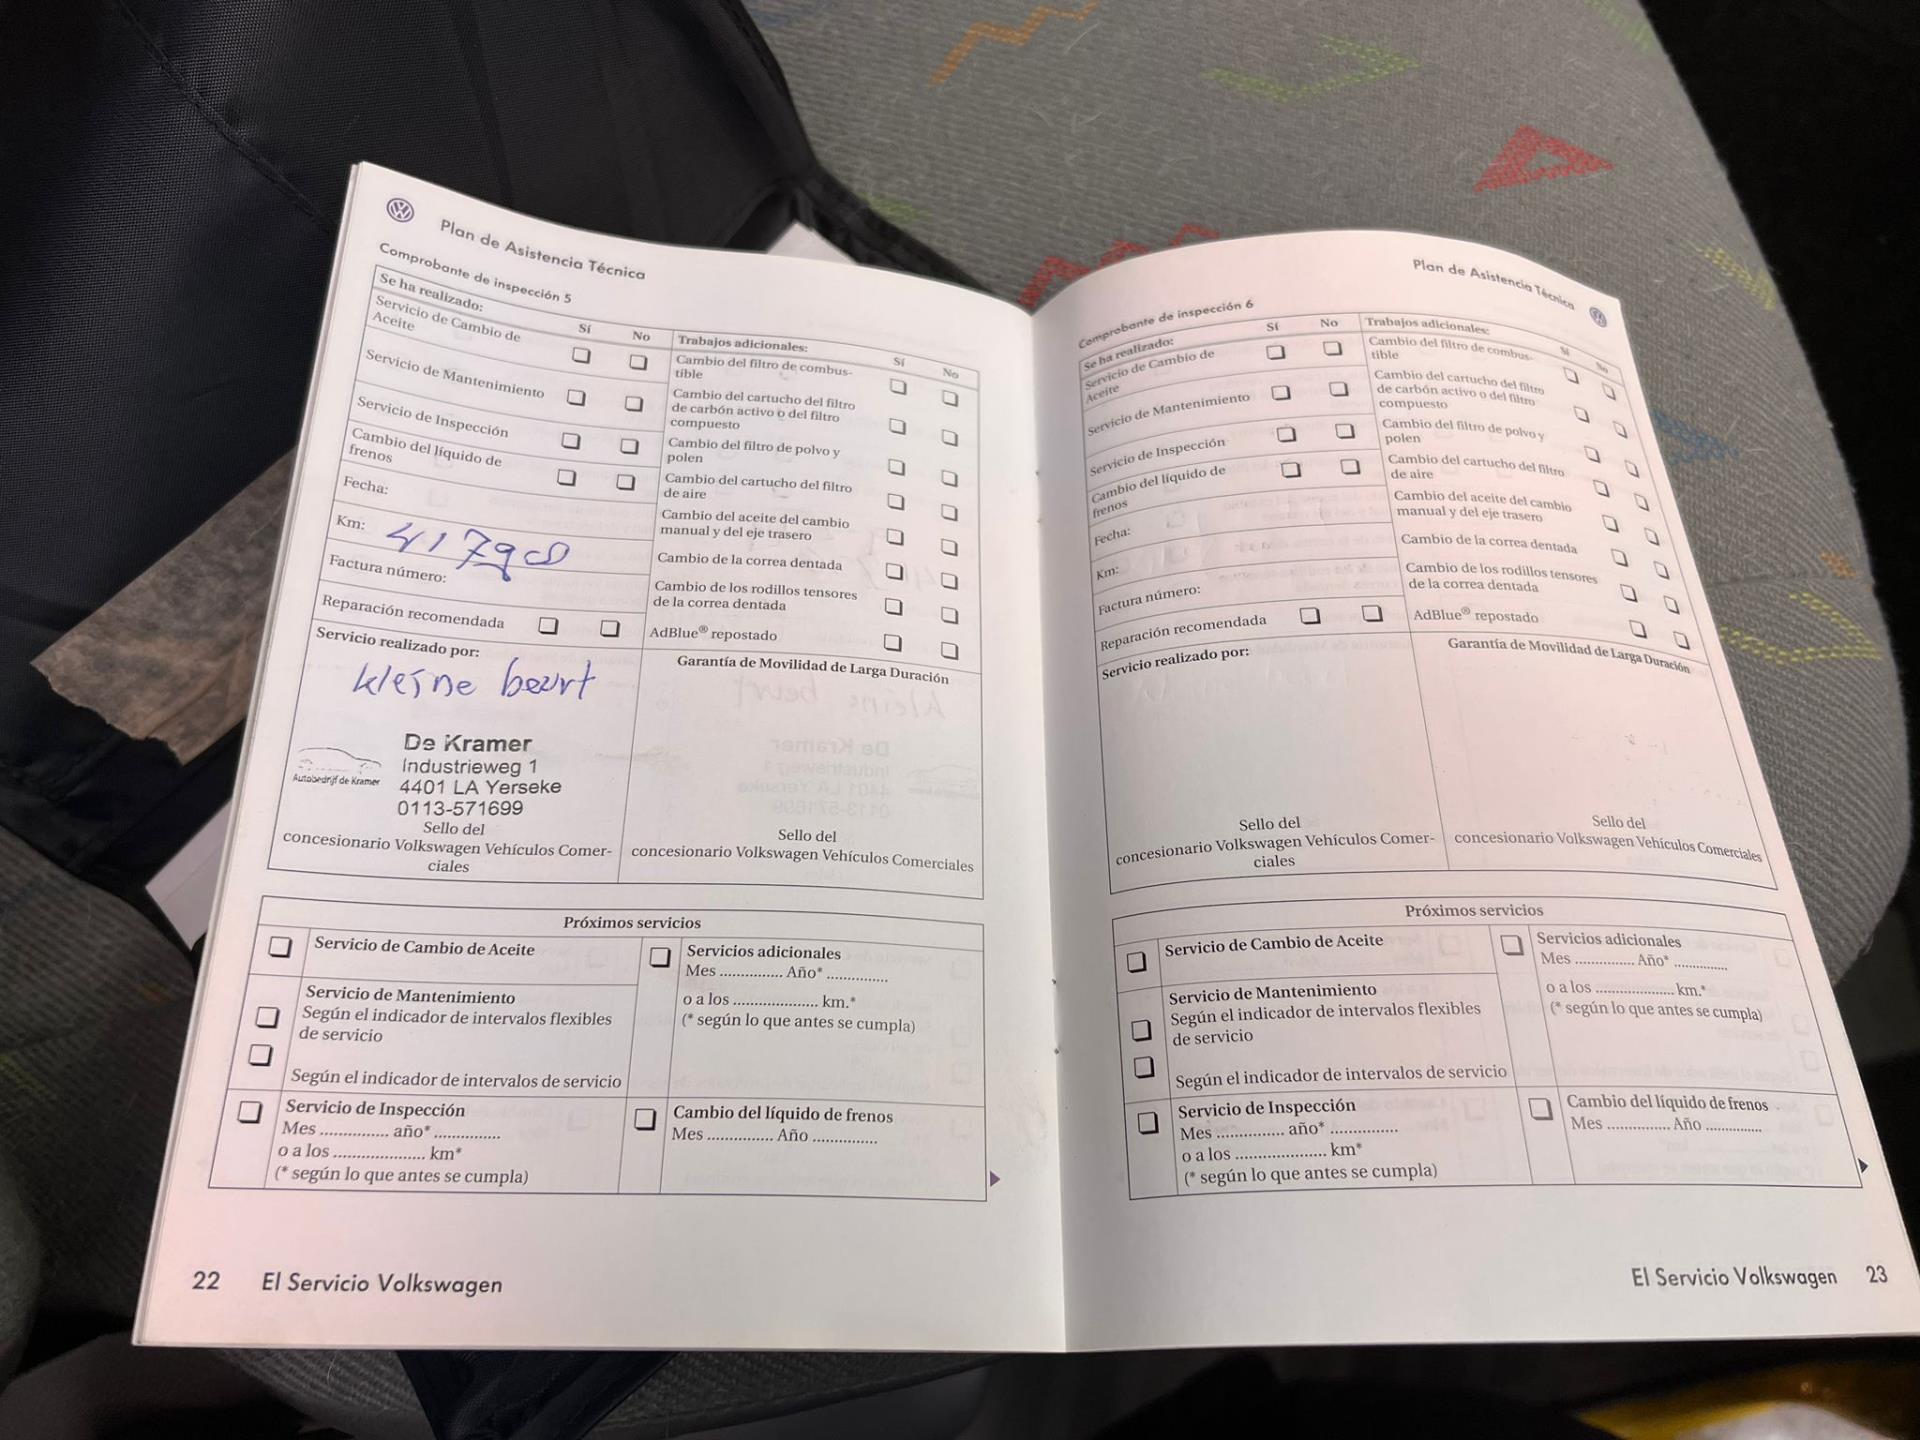 Plan de Asistencia Técnica
Comprobante de inspección 5
Se ha realizado:
Sí No
Servicio de Cambio de
Aceite
Servicio de Mantenimiento
Servicio de Inspección
Cambio del líquido de
frenos
Fecha:
Km: 417908
Factura número:
Reparación recomendada
Trabajos adicionales:
Sí No
Cambio del filtro de combus-
tible
Cambio del cartucho del filtro
de carbón activo o del filtro
compuesto
Cambio del filtro de polvo y
polen
Cambio del cartucho del filtro
de aire
Cambio del aceite del cambio
manual y del eje trasero
Cambio de la correa dentada
Cambio de los rodillos tensores
de la correa dentada
AdBlue® repostado
Servicio realizado por:
kleine beurt
De Kramer
Industrieweg 1
4401 LA Yerseke
0113-571699
Autobedrijf de Kramer
Sello del
concesionario Volkswagen Vehículos Comer-
ciales
Garantía de Movilidad de Larga Duración
Sello del
concesionario Volkswagen Vehículos Comerciales
Próximos servicios
Servicio de Cambio de Aceite
Servicio de Mantenimiento
Según el indicador de intervalos flexibles
de servicio
Según el indicador de intervalos de servicio
Servicio de Inspección
Mes ............... año* ...............
o a los .................... km*
(* según lo que antes se cumpla)
Servicios adicionales
Mes .............. Año* ..............
o a los .................... km.*
(* según lo que antes se cumpla)
Cambio del líquido de frenos
Mes ............... Año ..............
22 El Servicio Volkswagen
Plan de Asistencia Técnica
Comprobante de inspección 6
Se ha realizado:
Sí No
Servicio de Cambio de
Aceite
Servicio de Mantenimiento
Servicio de Inspección
Cambio del líquido de
frenos
Fecha:
Km:
Factura número:
Reparación recomendada
Trabajos adicionales:
Sí No
Cambio del filtro de combus-
tible
Cambio del cartucho del filtro
de carbón activo o del filtro
compuesto
Cambio del filtro de polvo y
polen
Cambio del cartucho del filtro
de aire
Cambio del aceite del cambio
manual y del eje trasero
Cambio de la correa dentada
Cambio de los rodillos tensores
de la correa dentada
AdBlue® repostado
Servicio realizado por:
Sello del
concesionario Volkswagen Vehículos Comer-
ciales
Garantía de Movilidad de Larga Duración
Sello del
concesionario Volkswagen Vehículos Comerciales
Próximos servicios
Servicio de Cambio de Aceite
Servicio de Mantenimiento
Según el indicador de intervalos flexibles
de servicio
Según el indicador de intervalos de servicio
Servicio de Inspección
Mes ............... año* ...............
o a los .................... km*
(* según lo que antes se cumpla)
Servicios adicionales
Mes .............. Año* ..............
o a los .................... km.*
(* según lo que antes se cumpla)
Cambio del líquido de frenos
Mes .............. Año ..............
El Servicio Volkswagen 23